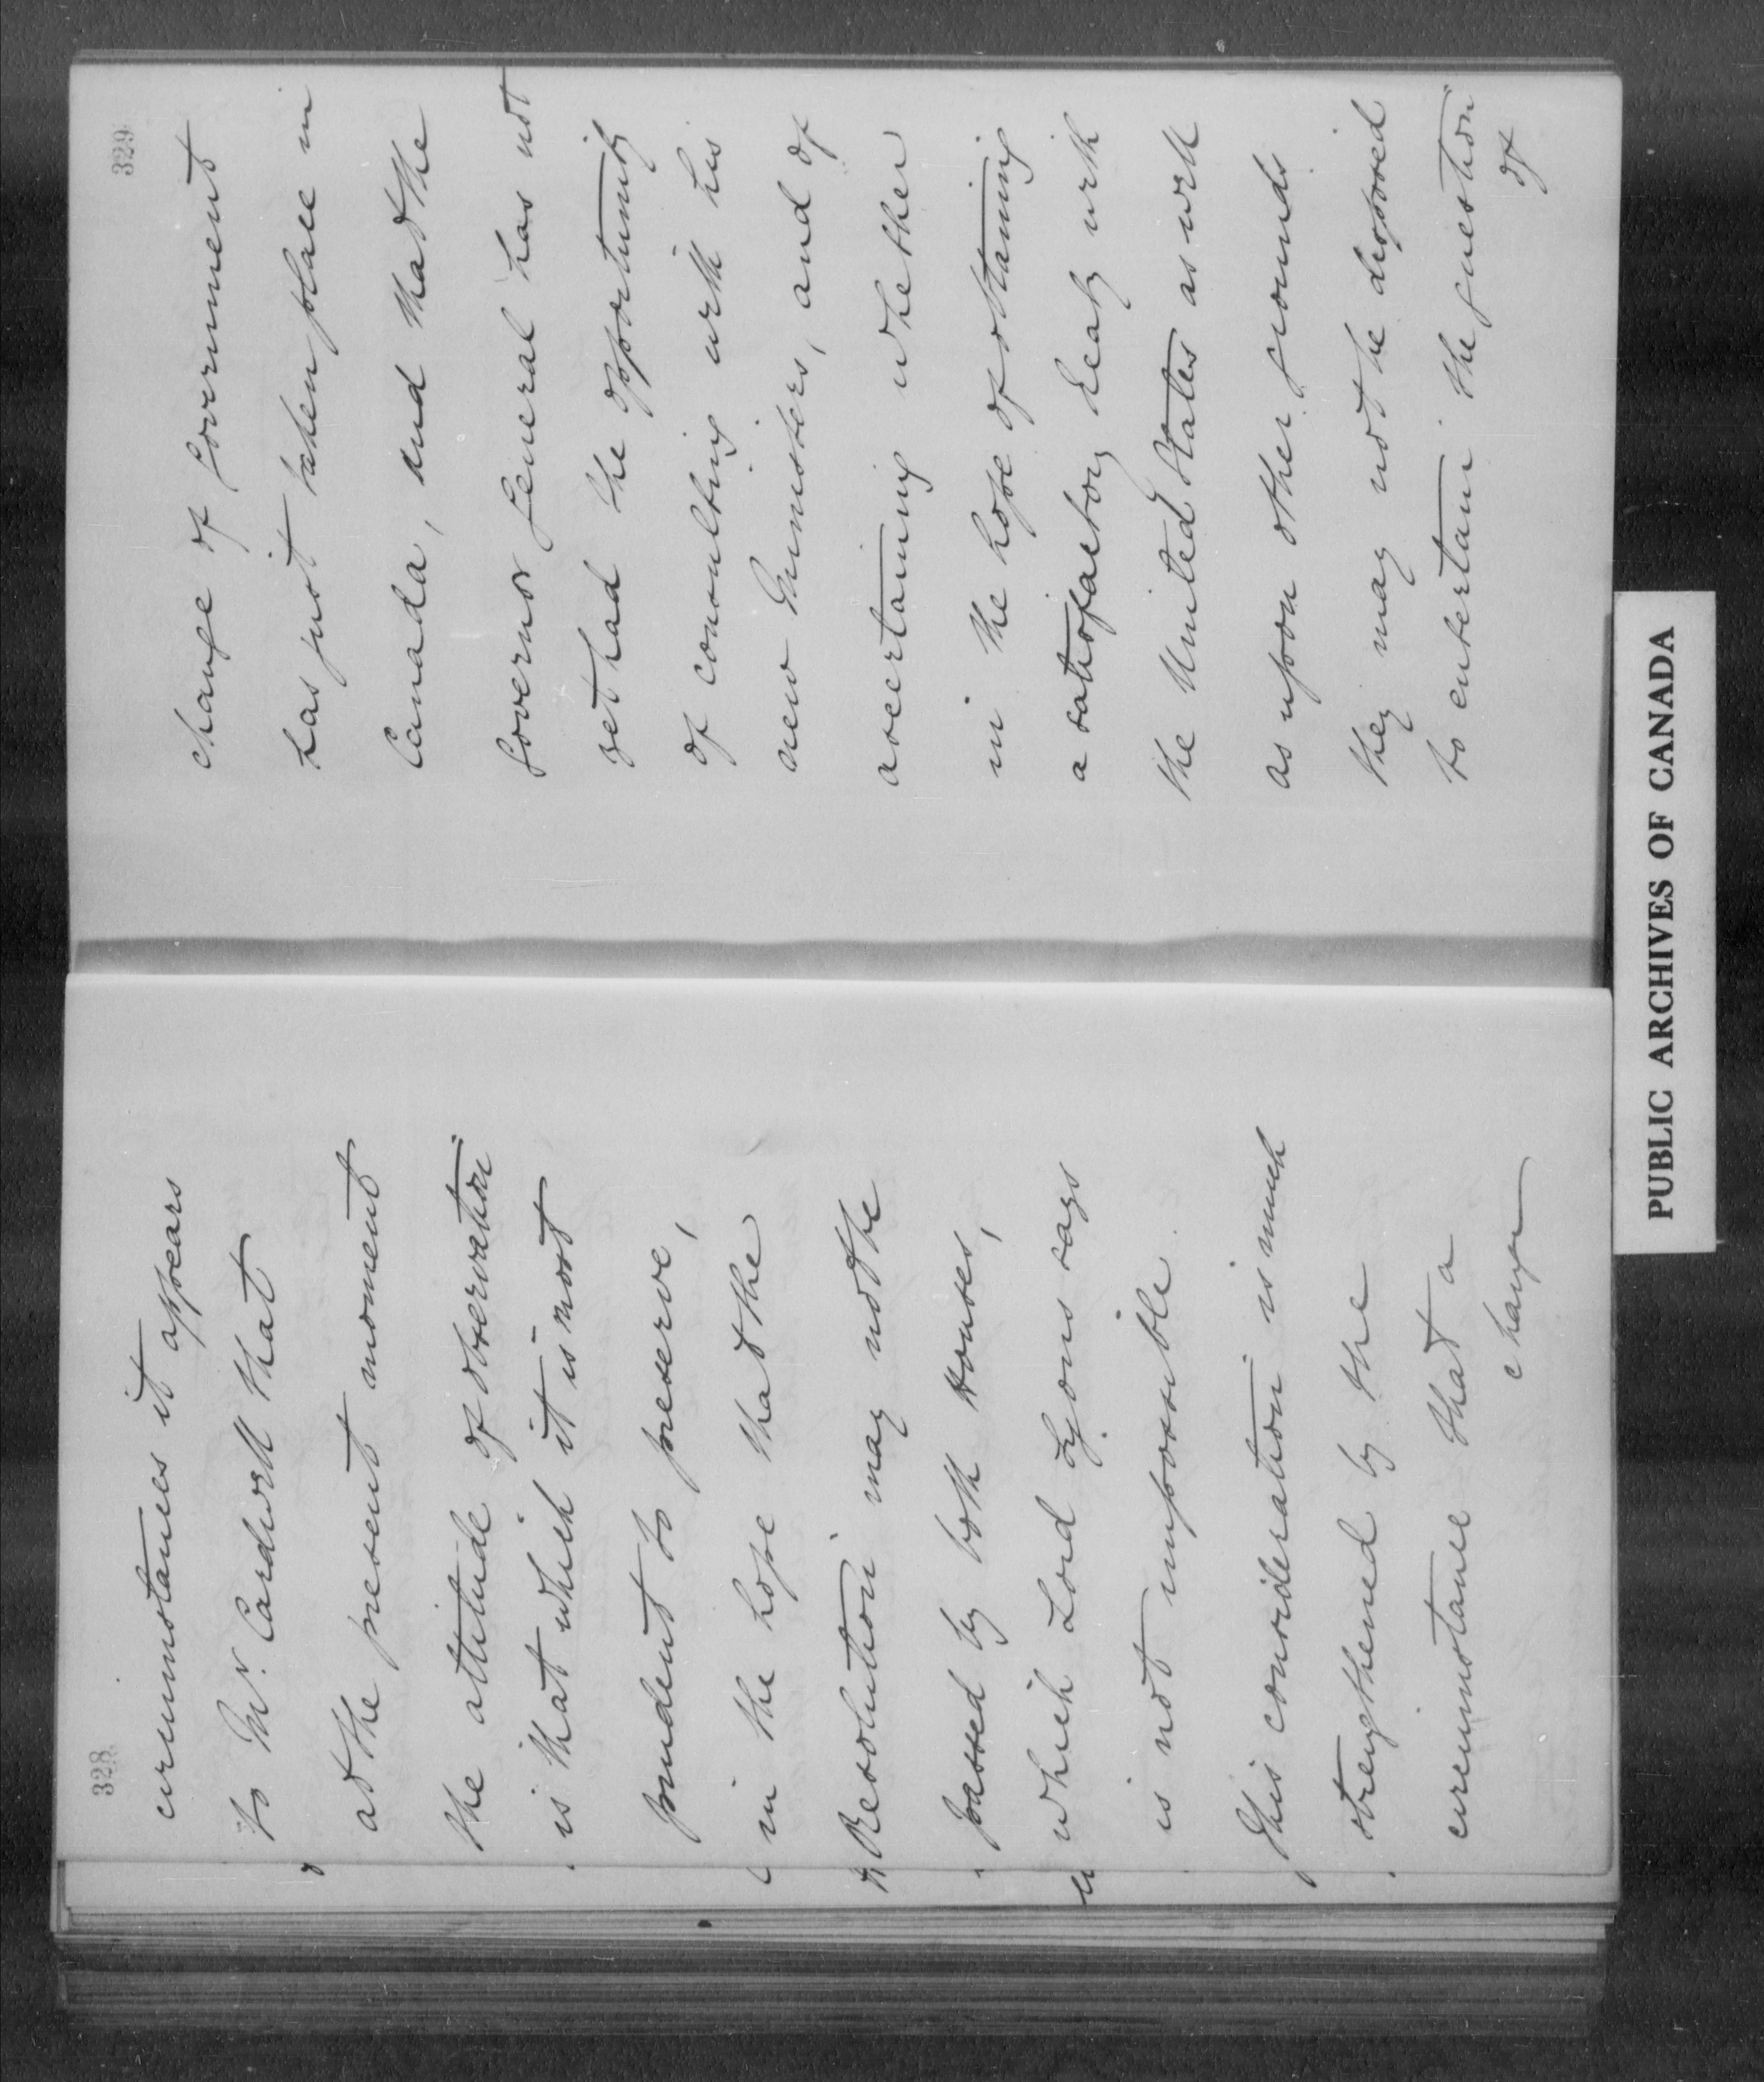 328
circumstances it appears
to Mr. Cardwell that
at the present moment
the attitude of observation
is that which it is most
prudent to preserve,
in the hope that the
Resolution may not be
passed by both Houses,
which Lord Lyons says
is not impossible.
This consideration is much
strengthened by the
circumstance that a
change
329
change of Government
has just taken place in
Canada, and that the
Governor General has not
yet had the opportunity
of consulting with his
new Ministers, and of
ascertaining whether
in the hope of obtaining
a satisfactory Treaty with
the United States as well
as upon other grounds
they may not be disposed
to entertain the question
of
PUBLIC ARCHIVES OF CANADA